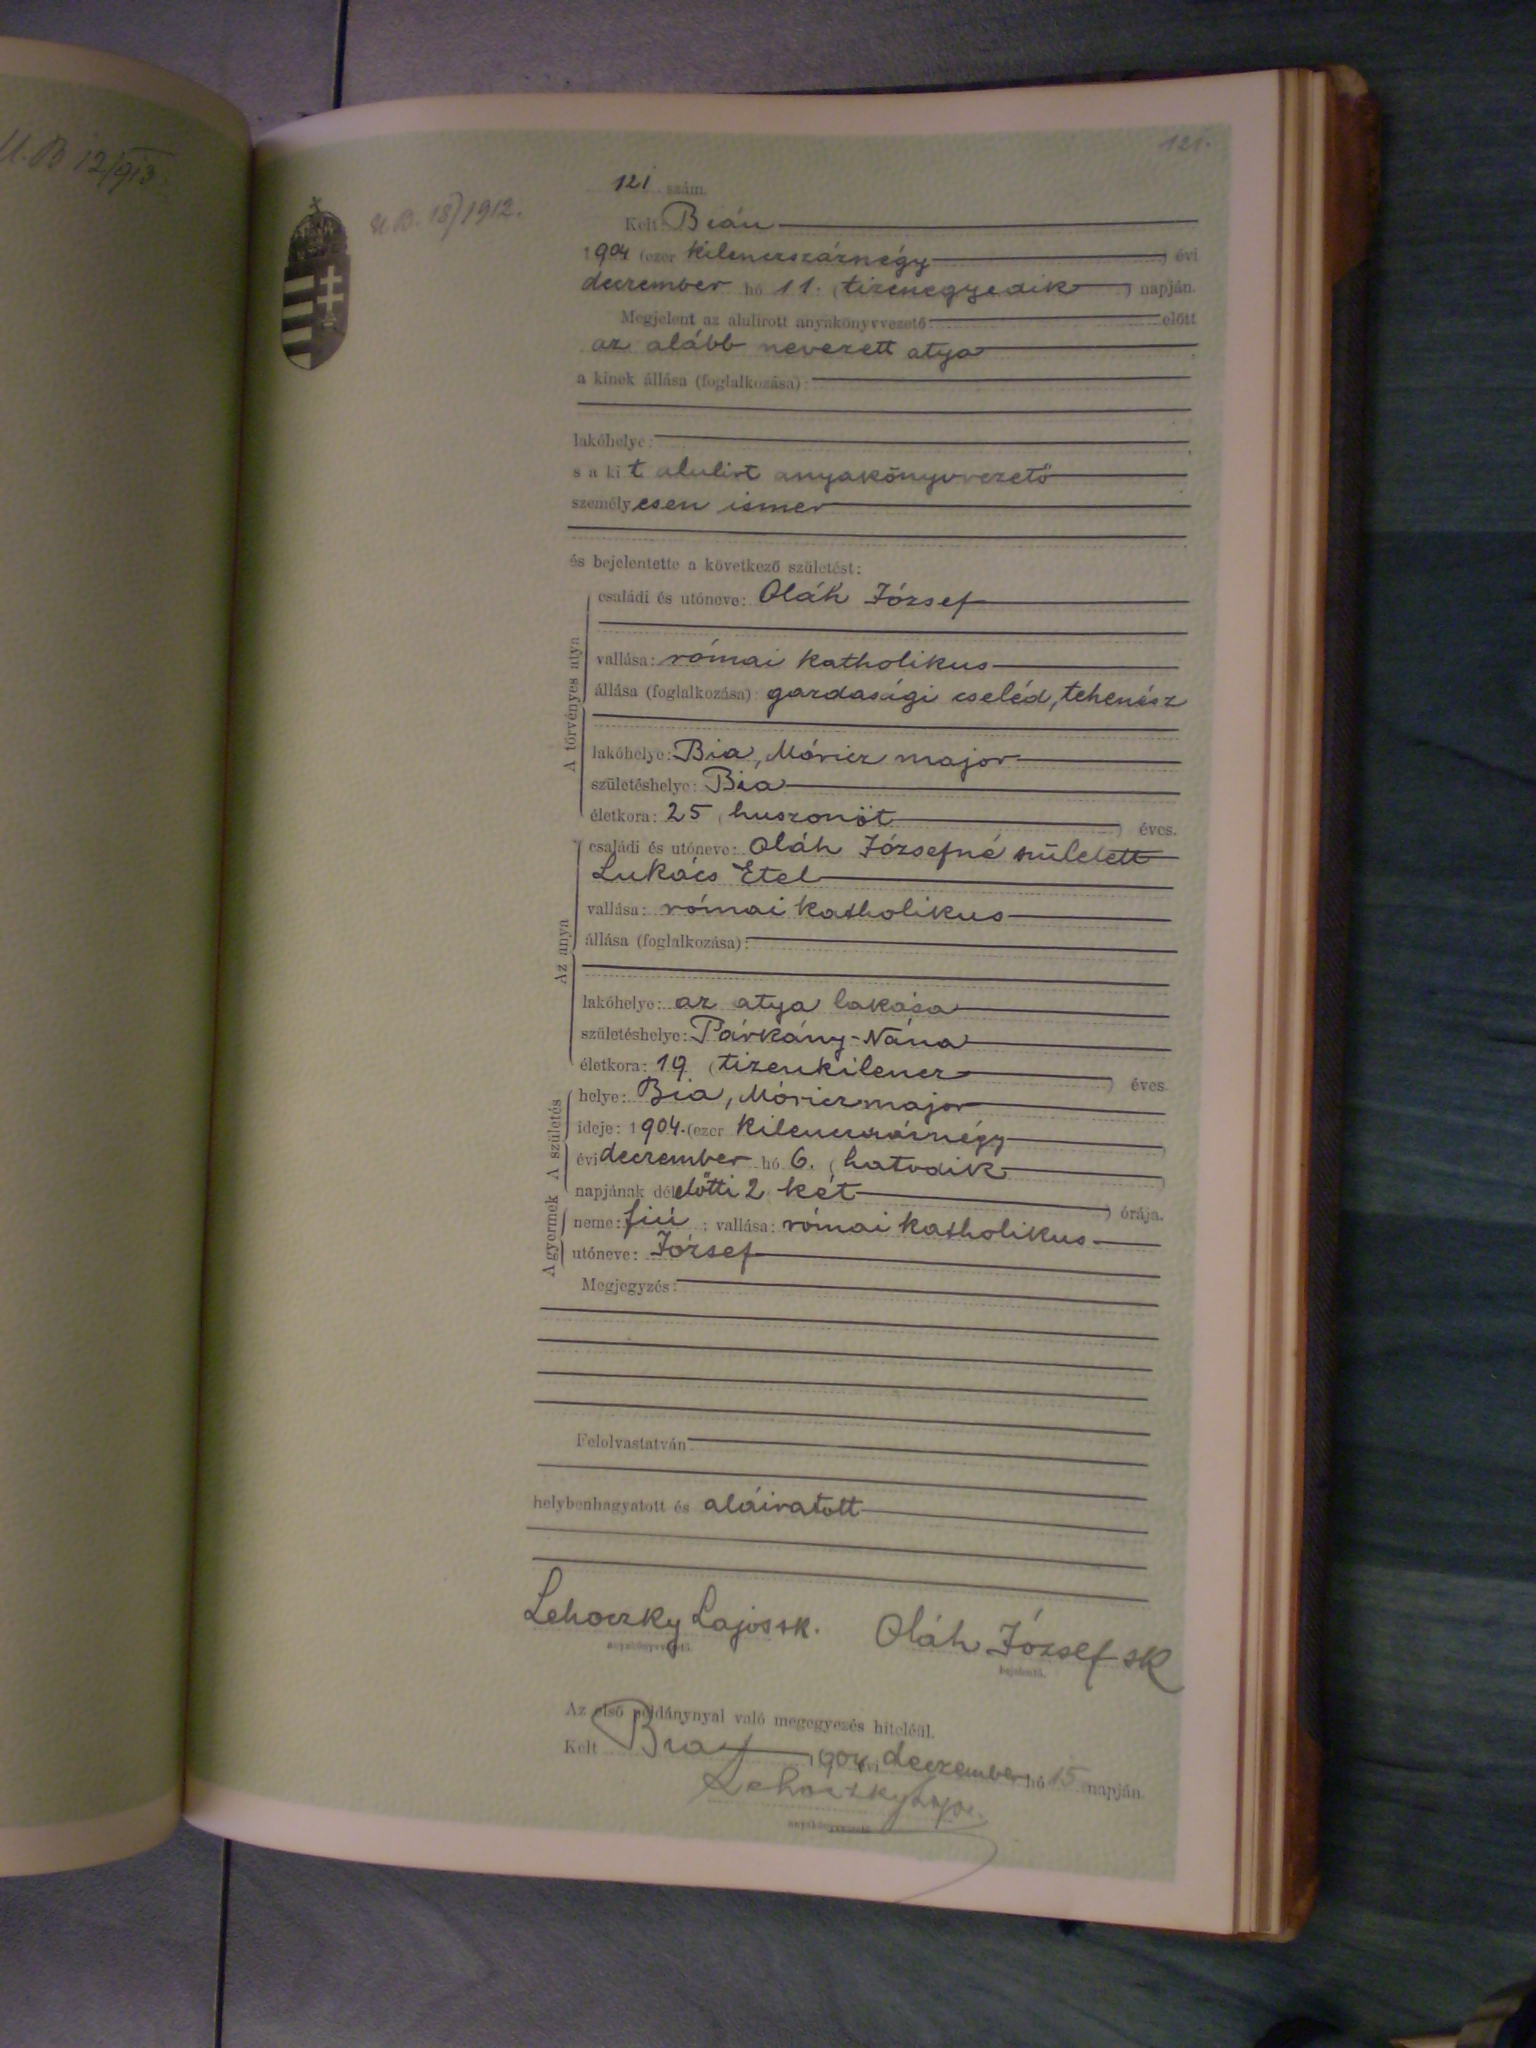 U.B 12/913
121.
U.B. 18/1912.
121 szám.
Kelt Bián
1904 (ezer kilencszáznégy) évi
deczember hó 11. (tizenegyedik) napján.
Megjelent az alulirott anyakönyvvezető előtt
az alább nevezett atya
a kinek állása (foglalkozása):
lakóhelye:
s a kit alulirt anyakönyvvezető
személyesen ismer
és bejelentette a következő születést:
A törvényes atya
családi és utóneve: Oláh József
vallása: római katholikus
állása (foglalkozása): gazdasági cseléd, tehenész
lakóhelye: Bia, Móricz major
születéshelye: Bia
életkora: 25 (huszonöt) éves.
Az anya
családi és utóneve: Oláh Józsefné született
Lukács Etel
vallása: római katholikus
állása (foglalkozása):
lakóhelye: az atya lakása
születéshelye: Párkány-Nána
életkora: 19 (tizenkilencz) éves.
A születés
helye: Bia, Móriczmajor
ideje: 1904. (ezer kilenczszáznégy)
évi deczember hó 6. (hatodik)
napjának délelőtti 2 (két) órája.
A gyermek
neme: fiú ; vallása: római katholikus
utóneve: József
Megjegyzés:
Felolvastatván
helybenhagyatott és aláiratott
Lehoczky Lajos sk. Oláh József sk
anyakönyvvezető. bejelentő.
Az első példánynyal való megegyezés hiteléül.
Kelt Bia 1904 évi deczember hó 15 napján.
Lehoczky Lajos
anyakönyvvezető